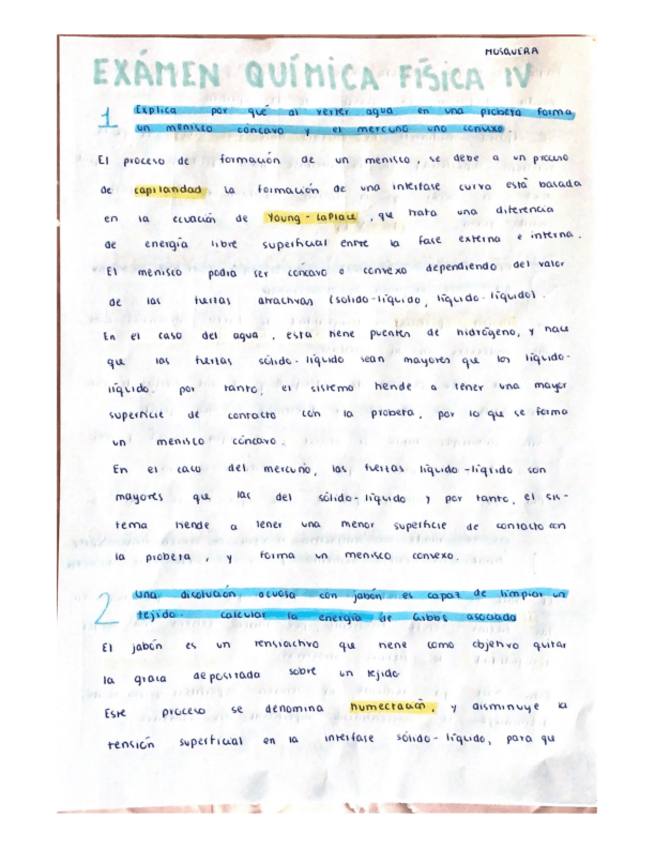 MOSQUERA
EXÁMEN QUÍMICA FÍSICA IV
1 Explica por qué al verter agua en una probeta forma
un menisco cóncavo y el mercurio uno convexo.
El proceso de formación de un menisco, se debe a un proceso
de capilaridad, la formación de una interfase curva está basada
en la ecuación de Young-Laplace, que trata una diferencia
de energía libre superficial entre la fase externa e interna.
El menisco podrá ser cóncavo o convexo dependiendo del valor
de las fuerzas atractivas (sólido-líquido, líquido-líquido).
En el caso del agua, esta tiene puentes de hidrógeno, y hace
que las fuerzas sólido-líquido sean mayores que los líquido-
líquido. por tanto, el sistema tiende a tener una mayor
superficie de contacto con la probeta, por lo que se forma
un menisco cóncavo.
En el caso del mercurio, las fuerzas líquido-líquido son
mayores que las del sólido-líquido y por tanto, el sis-
tema tiende a tener una menor superficie de contacto con
la probeta, y forma un menisco convexo.
2 una disolución acuosa con jabón es capaz de limpiar un
tejido. calcular la energía de Gibbs asociada
El jabón es un tensiactivo que tiene como objetivo quitar
la grasa depositada sobre un tejido
Este proceso se denomina humectación, y disminuye la
tensión superficial en la interfase sólido-líquido, para que